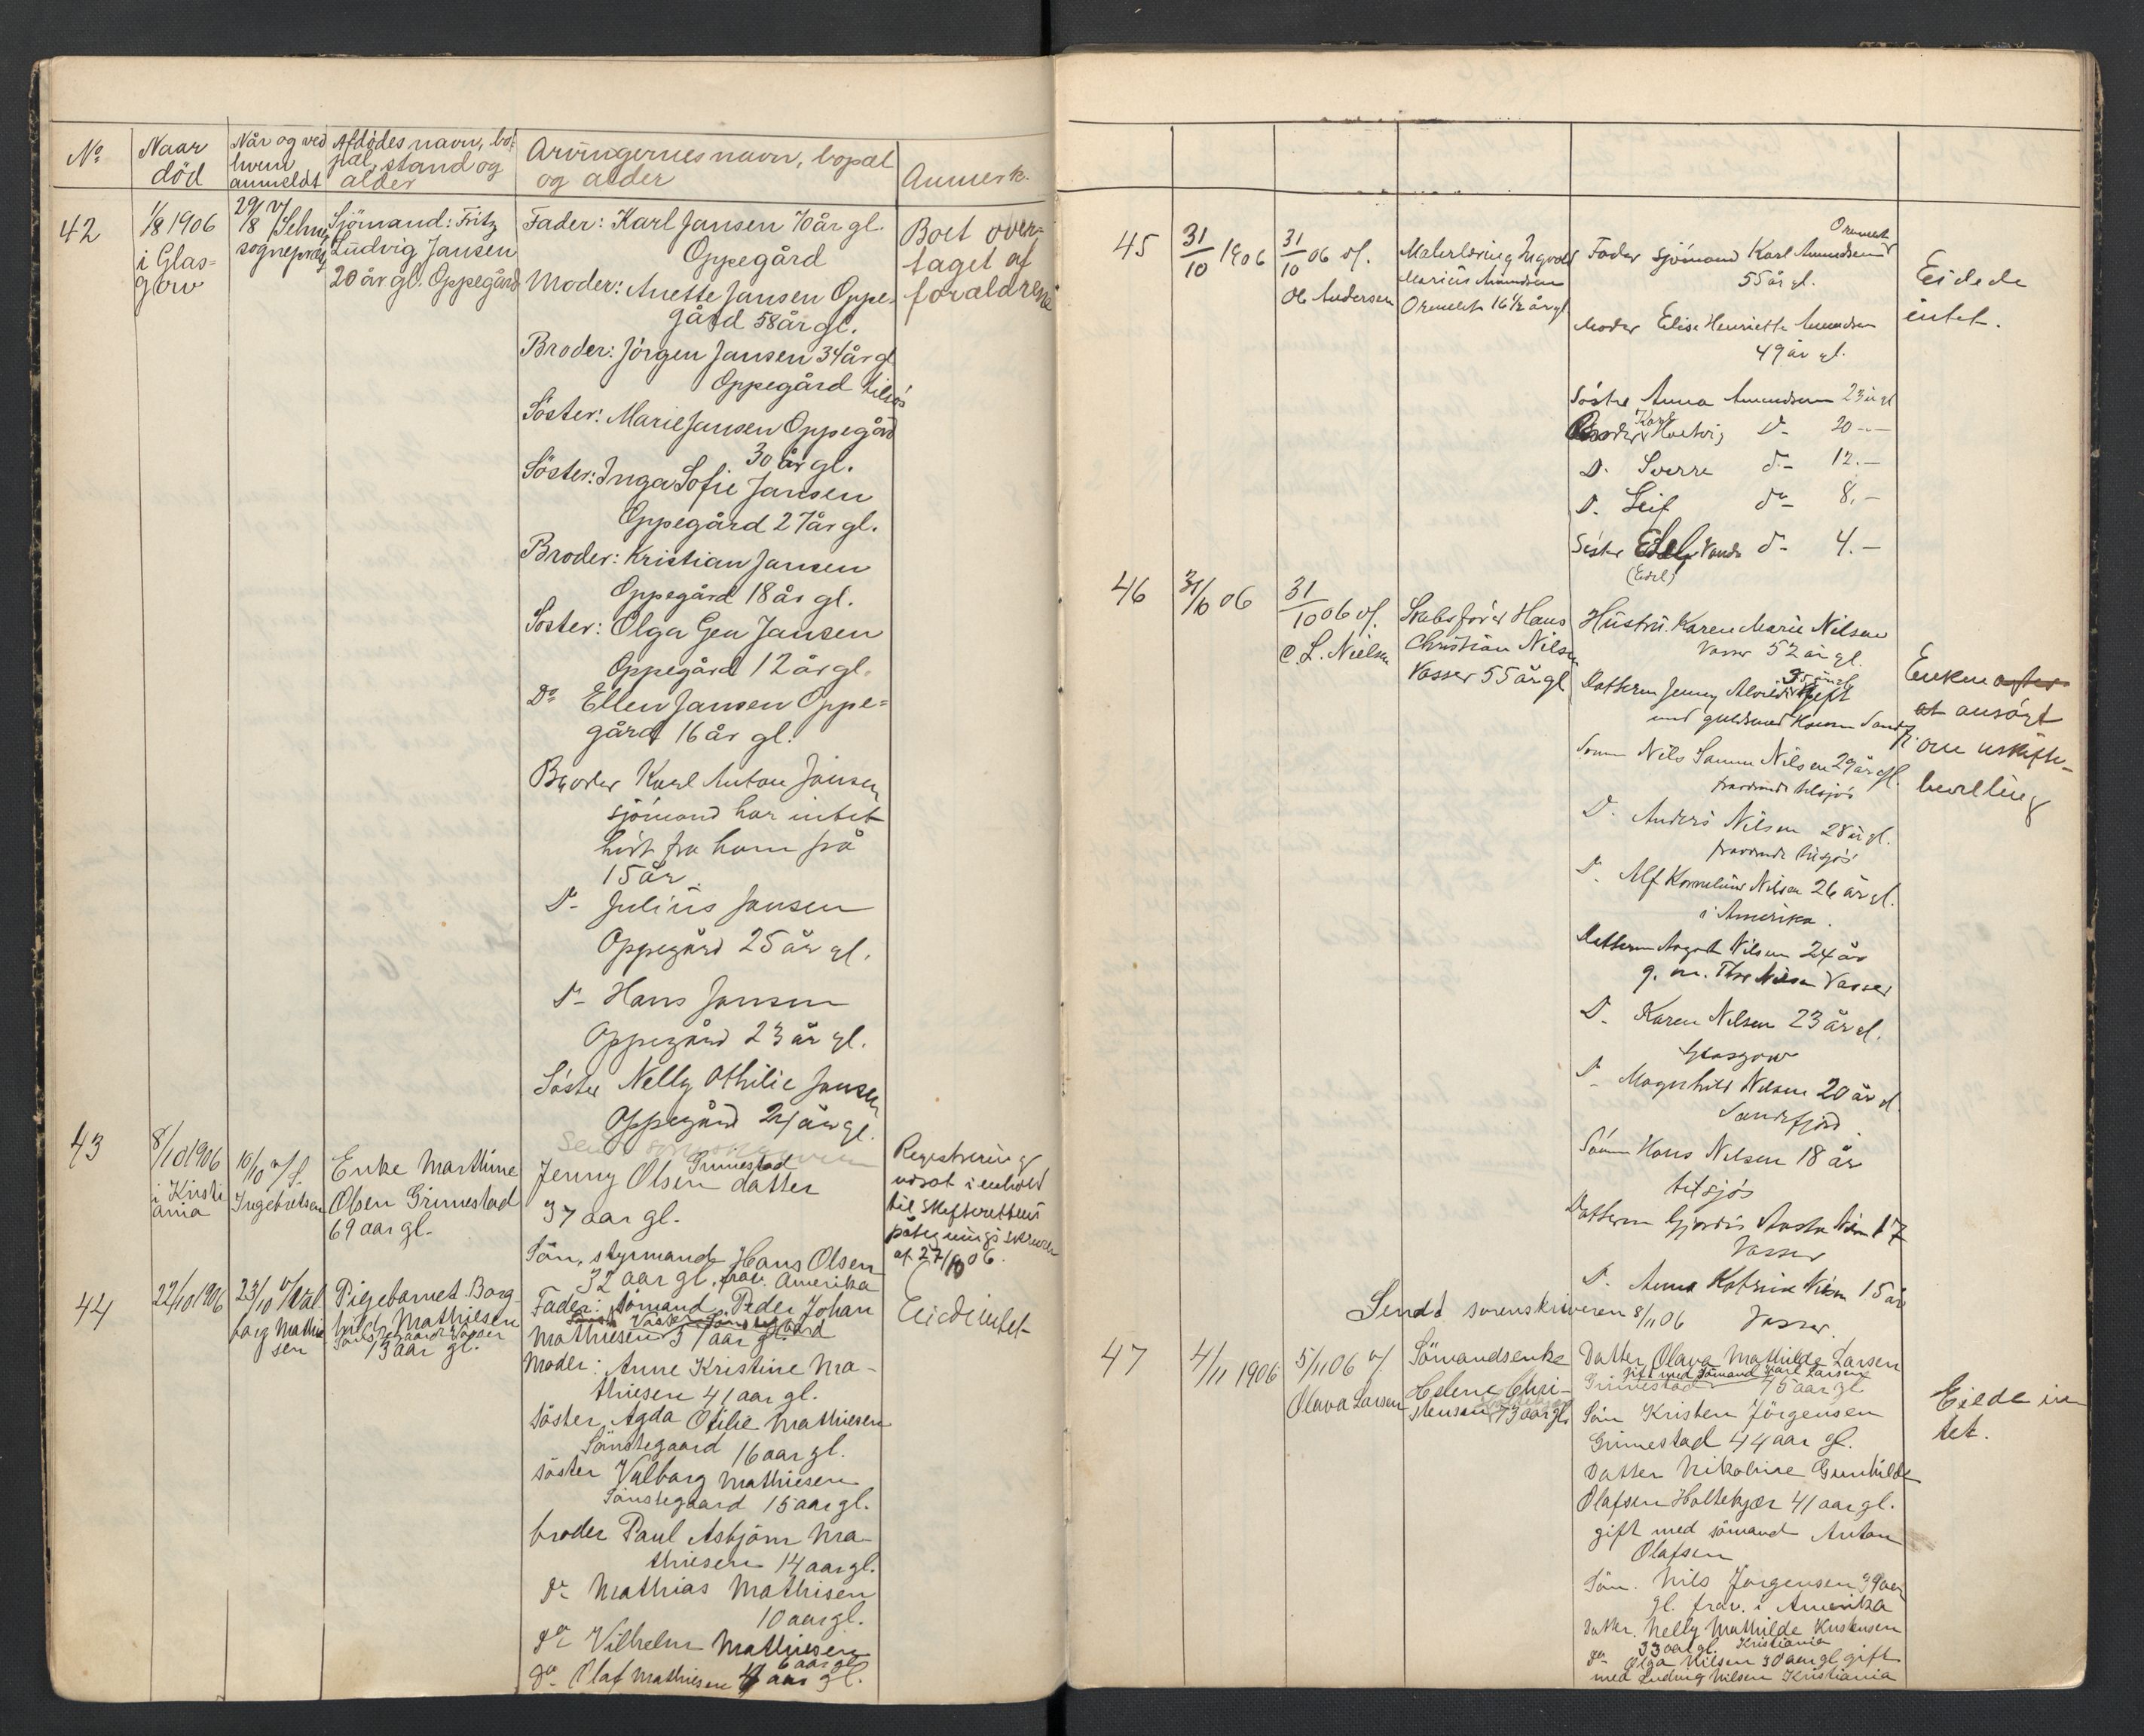 No
Naar
död
Når og ved
hvem
anmeldt
Afdödes navn, bo-
pæl, stand og
alder
Arvingernes navn, bopæl
og alder
Anmerk.
42
1/8 1906
i Glas-
gow
29/8 v/
sognepræst
Sjömand: Fritz
Ludvig Jansen
20 år gl. Oppegård
Fader: Karl Jansen 70 år gl.
Oppegård
Moder: Anette Jansen Oppe-
gård 58 år gl.
Broder: Jörgen Jansen 34 år gl
Oppegård tilsjös
Söster: Marie Jansen Oppegård
30 år gl.
Söster: Inga Sofie Jansen
Oppegård 27 år gl.
Broder: Kristian Jansen
Oppegård 18 år gl.
Söster: Olga Gea Jansen
Oppegård 12 år gl.
Do Ellen Jansen Oppe=
gård 16 år gl.
Broder Karl Anton Jansen
sjömand har intet
hört fra ham på
15 år
D- Julius Jansen
Oppegård 25 år gl.
D- Hans Jansen
Oppegård 23 år gl.
Söster Nelly Othilie Jansen
Oppegård 24 år gl.
Boet over-
taget af
forældrene
43
8/10 1906
i Kristi
ania
10/10 v/
Ingebretsen
Enke Marthine
Olsen Grimestad
69 aar gl.
Sendt sorenskriveren
Grimestad
Jenny Olsen datter
37 aar gl.
Sön, styrmand Hans Olsen
32 aar gl. frav. Amerika
Registrering
udsat i enhold
til Skifterettens
påtegningsskrivelse
af 27/10 06.
44
22/10 1906
23/10 v/ Val
borg Mathie
sen
Pigebarnet Borg
hild Mathiesen
Sönstegaard Vasser
13 aar gl.
Fader: Sömand Peder Johan
Mathiesen 51 aar gl.
Moder: Anne Kristine Ma-
thiesen 41 aar gl.
Söster Agda Otilie Mathiesen
Sönstegaard 16 aar gl.
söster Valborg Mathiesen
Sönstegaard 15 aar gl.
broder Paul Asbjörn Ma-
thiesen 14 aar gl.
do Mathias Mathisen
10 aar gl.
do Vilhelm Mathiesen
6 aar gl
do Olaf Mathiesen 4 aar gl.
Eiede intet
45
31/10 1906
31/10 06 v/.
Ole Andersen
Malerlæring Ingvald
Marius Amundsen
Ormelet 16 1/2 år gl
Ormelet
Fader sjömand Karl Amundsen
55 år gl.
Moder Elise Henriette Amundsen
49 år gl.
Söster Anna Amundsen 23 år gl
Karl
Broder Hartvig D- 20 -
D. Sverre d- 12. -
D. Leif do 8. -
Söster Edel Vanda d- 4. -
(Edel)
Eidede
intet.
46
31/10 06
31/10 06 v/.
C. L. Nielsen
Skibsförer Hans
Christian Nilsen
Vasser 55 år gl
Hustru. Karen Marie Nilsen
Vasser 52 år gl.
35 år gl
Datteren Jenny Alvilde gift
med guldsmed Sandefj.
Sönn Nils Samm Nilsen 29 år gl.
fraværende tilsjös
D. Anders Nilsen 28 år gl.
fraværende tilsjös
D. Alf Kornelius Nilsen 26 år gl.
i Amerika.
Datteren Aagot Nilsen 24 år
g. m. Thor Nilsen Vasser
D. Karen Nilsen 23 år gl.
Glasgow
D- Magnhild Nilsen 20 år gl
Sandefjord
Sönn Hans Nilsen 18 år
tilsjös
Datteren Gjördis Aasta Nilsen 17
Vasser
D. Anna Katrine Nilsen 15 år
Vasser.
Enken
at ansögt
om uskifte-
bevilling
Sendt sorenskriveren 8/11 06
47
4/11 1906
5/11 06 v/.
Olava Larsen
Sömandsenke
Helene Chri-
stensen 73 aar gl.
Datter Olava Mathilde Larsen
gift med Sömand Karl Larsen
Grimestad 45 aar gl
Sön Kristen Jörgensen
Grimestad 44 aar gl.
Datter Nikoline Gunhilde
Olafsen Holtekjær 41 aar gl.
gift med sömand Anton
Olafsen
Sön. Nils Jörgensen 39 aar
gl. frav. i Amerika
Datter. Nelly Mathilde Kristensen
33 aar gl. Kristiania
do Olga Nilsen 30 aar gl gift
med Ludvig Nilsen Kristiania
Eiede in
tet.